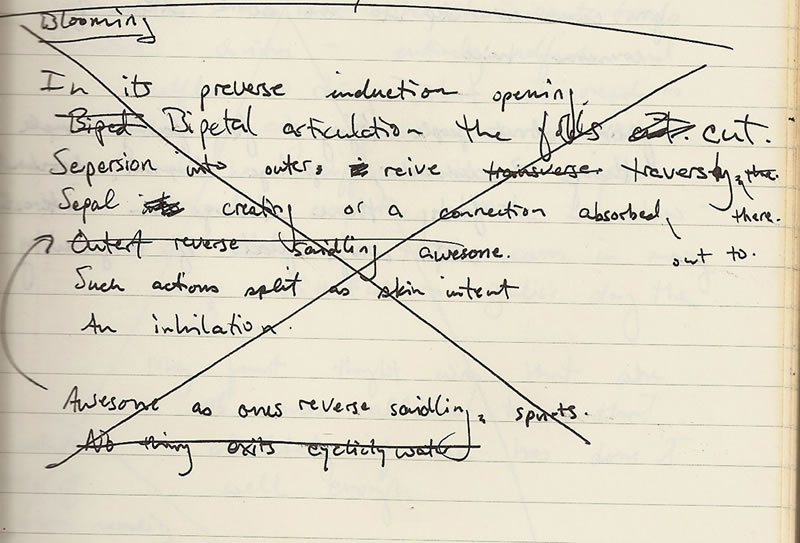 Blooming
In its preverse induction opening,
Biped Bipetal articulation the folds out. cut.
Sepersion into outer, reive transverse traversly, the.
Sepal its creating or a connection absorbed, there.
Outert reverse saidling awesome. out to.
Such actions split as skin intent
An inhilation.
Awesome as ones reverse saidling, spurts.
No thing exits cyclicly water